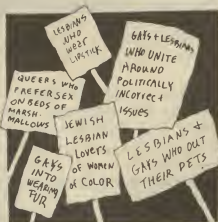 LESBIANS
WHO
WEAR
LIPSTICK
GAYS + LESBIANS
WHO UNITE
AROUND
POLITICALLY
INCORRECT
ISSUES
QUEERS WHO
PREFER SEX
ON BEDS OF
MARSH-
MALLOWS
JEWISH
LESBIAN
LOVERS
OF WOMEN
OF COLOR
LESBIANS +
GAYS WHO OUT
THEIR PETS!
GAYS
INTO
WEARING
FUR